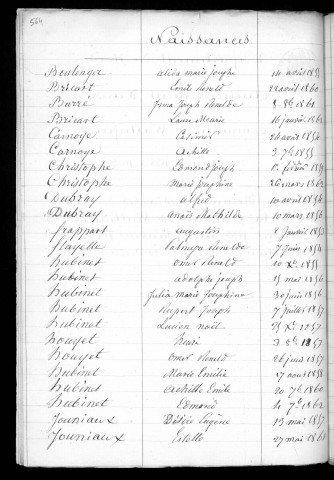 564
Naissances
Boulenger alida marie josephe 14 avril 1855
Bricart Emile 22 avril 1860
Barré Joseph 8 9bre 1861
Bricart Laure Maria 16 janvier 1862
Carnoye Casimir 24 avril 1854
Carnoye Achille 3 7bre 1855
Christophe Edmond joseph 1854
Christophe Marie joséphine 26 mars 1862
Dubray alfred 10 avril 1854
Dubray anaïs Mathilde 10 mars 1856
frappart augustin 8 janvier
flayette 7 juin 1854
hubinet omer 10 Xbre 1855
hubinet adolphe joseph 15 mai 1856
hubinet Julia marie Joséphine 30 juin 1856
hubinet Rupert Joseph 7 juillet 1857
hubinet Lucien noël 25 Xbre 1857
houyet henri 1857
houyet omer 26 juin 1857
hubinet Marie Emilie 17 aout 1858
hubinet Achille Emile 20 7bre 1860
hubinet Edmond 4 7bre 1862
Jouniaux Désiré Eugène 13 mai 1857
Jouniaux Estelle 27 mai 1860